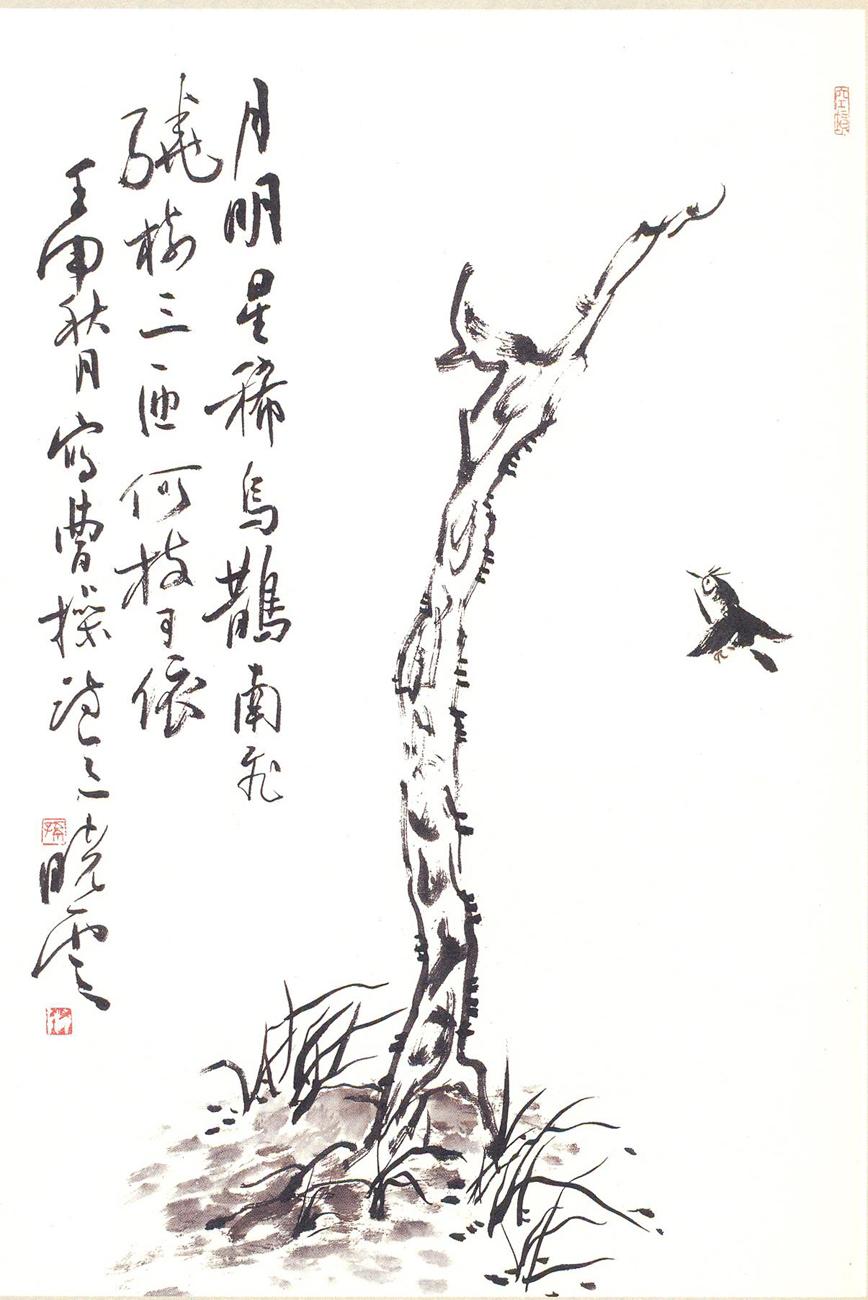 月明星稀烏鵲南飛
繞樹三匝何枝可依
壬申秋月寫曹操詩意曉雲